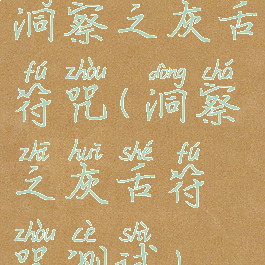 洞察之灰舌
fú zhòu dòng chá
符咒(洞察
zhī huī shé fú
之灰舌符
zhòu cè shì
咒测试)